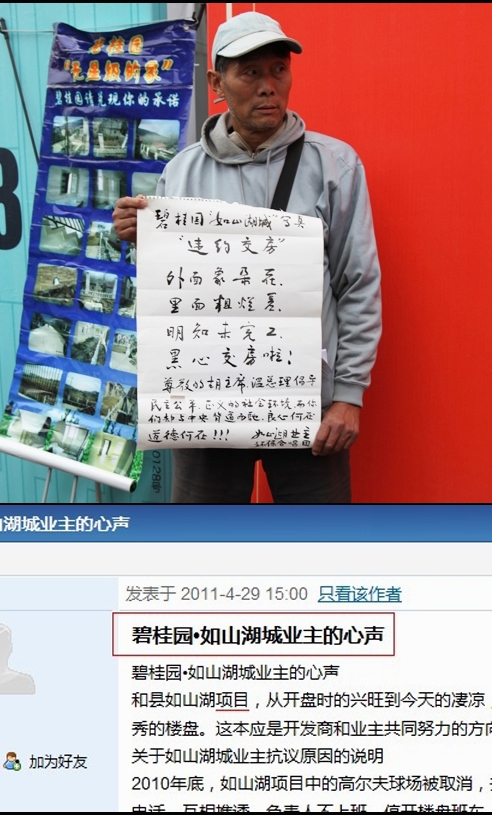 碧桂园
"无星级的家"
碧桂园请兑现你的承诺
碧桂园"如山湖城"写真
"违约交房"
外面象朵花、
里面粗烂差、
明知未完工、
黑心交房啦！
尊敬的胡主席、温总理倡导
民主公平、正义的社会环境、而你
们却与中央背道而驰、良心何在
道德何在!!! 如山湖业主
环保合唱团
山湖城业主的心声
发表于 2011-4-29 15:00 只看该作者
碧桂园•如山湖城业主的心声
碧桂园•如山湖城业主的心声
和县如山湖项目，从开盘时的兴旺到今天的凄凉，
秀的楼盘。这本应是开发商和业主共同努力的方向
关于如山湖城业主抗议原因的说明
加为好友
2010年底，如山湖项目中的高尔夫球场被取消，
电话，互相推诿，负责人不上班，停开楼盘班车